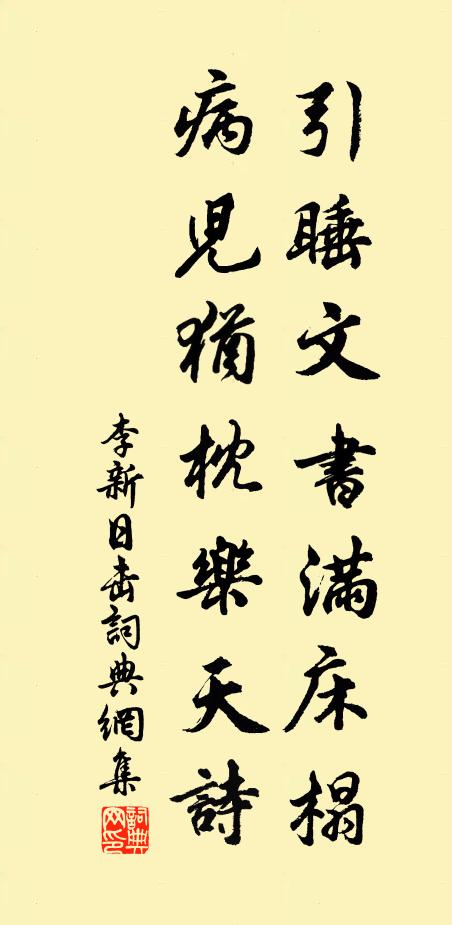 引睡文書滿床榻
病兒猶枕樂天詩
李新日出詞典網集
詞典
网印